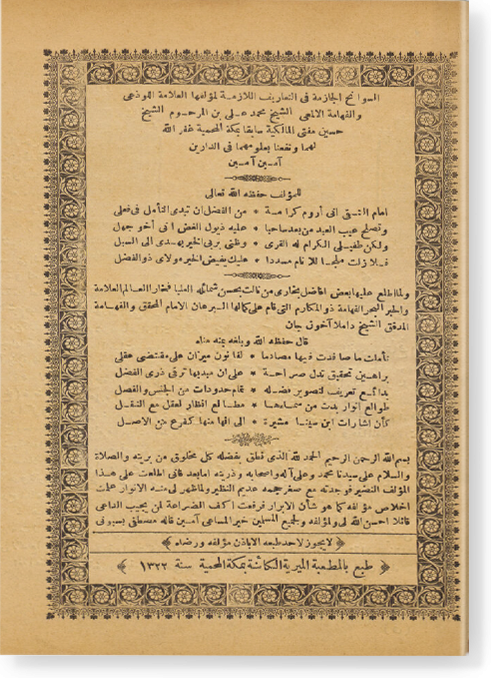 السوانح الجازمة فى التعاريف اللازمة لمؤلفها العلامة اللوذعى
والفهامة الالمعى الشيخ محمد على بن المرحوم الشيخ
حسين مفتى المالكية سابقا بمكة المحمية غفر الله
لهما ونفعنا بعلومهما فى الدارين
آمين آمين
للمؤلف حفظه الله تعالى
امام التقى انى أروم كرامة * من الفضل ان تبدى التأمل فى فعلى
وتصلح عيب العبد من بعد ساحبا * عليه ذيول الغض انى أخو جهل
ولكن طفيلى الكرام له القرى * وظنى بربى الخير يهدى الى السبل
فلا زلت ملجأ للانام مسددا * عليك يفيض الخير مولاى ذو الفضل
ولما اطلع عليها بعض أفاضل بخارى من نالت بحسن شمائله العليا فخارا العالم العلامة
والحبر البحر الفهامة ذو المكارم التى قام على كمالها البرهان الامام المحقق والفهامة
المدقق الشيخ داملا آخون جان
قال حفظه الله وبلغه عنه مناه
تأملت ما صادفت فيها مصادما * لقانون ميزان على مقتضى عقلى
براهين تحقيق تدل صراحة * على ان مبديها ترقى ذرى الفضل
بدائع تعريف لتصوير فضله * تمام حدودات من الجنس والفصل
طوالع أنوار بدت من سمائها * مطالع افظار لعقل مع النقل
كأن اشارات ابن سينا مشيرة * الى انها منها كفرع من الاصل
بسم الله الرحمن الرحيم الحمد لله الذى نطق بفضله كل مخلوق من بريته والصلاة
والسلام على سيدنا محمد وعلى آله واصحابه وذريته اما بعد فانى اطلعت على هذا
المؤلف النضير فوجدته مع صغر حجمه عديم النظير ولما ظهر لى منه الانوار علمت
اخلاص مؤلفه كما هو شأن الابرار فرفعت أكف الضراعة لمن يجيب الداعى
قائلا احسن الله لى ولمؤلفه ولجميع المسلمين خير المساعى آمين قاله مصطفى
لا يجوز لاحد طبعه الا باذن مؤلفه ورضاه
طبع بالمطبعة الميرية الكائنة بمكة المحمية سنة ١٣٢٢